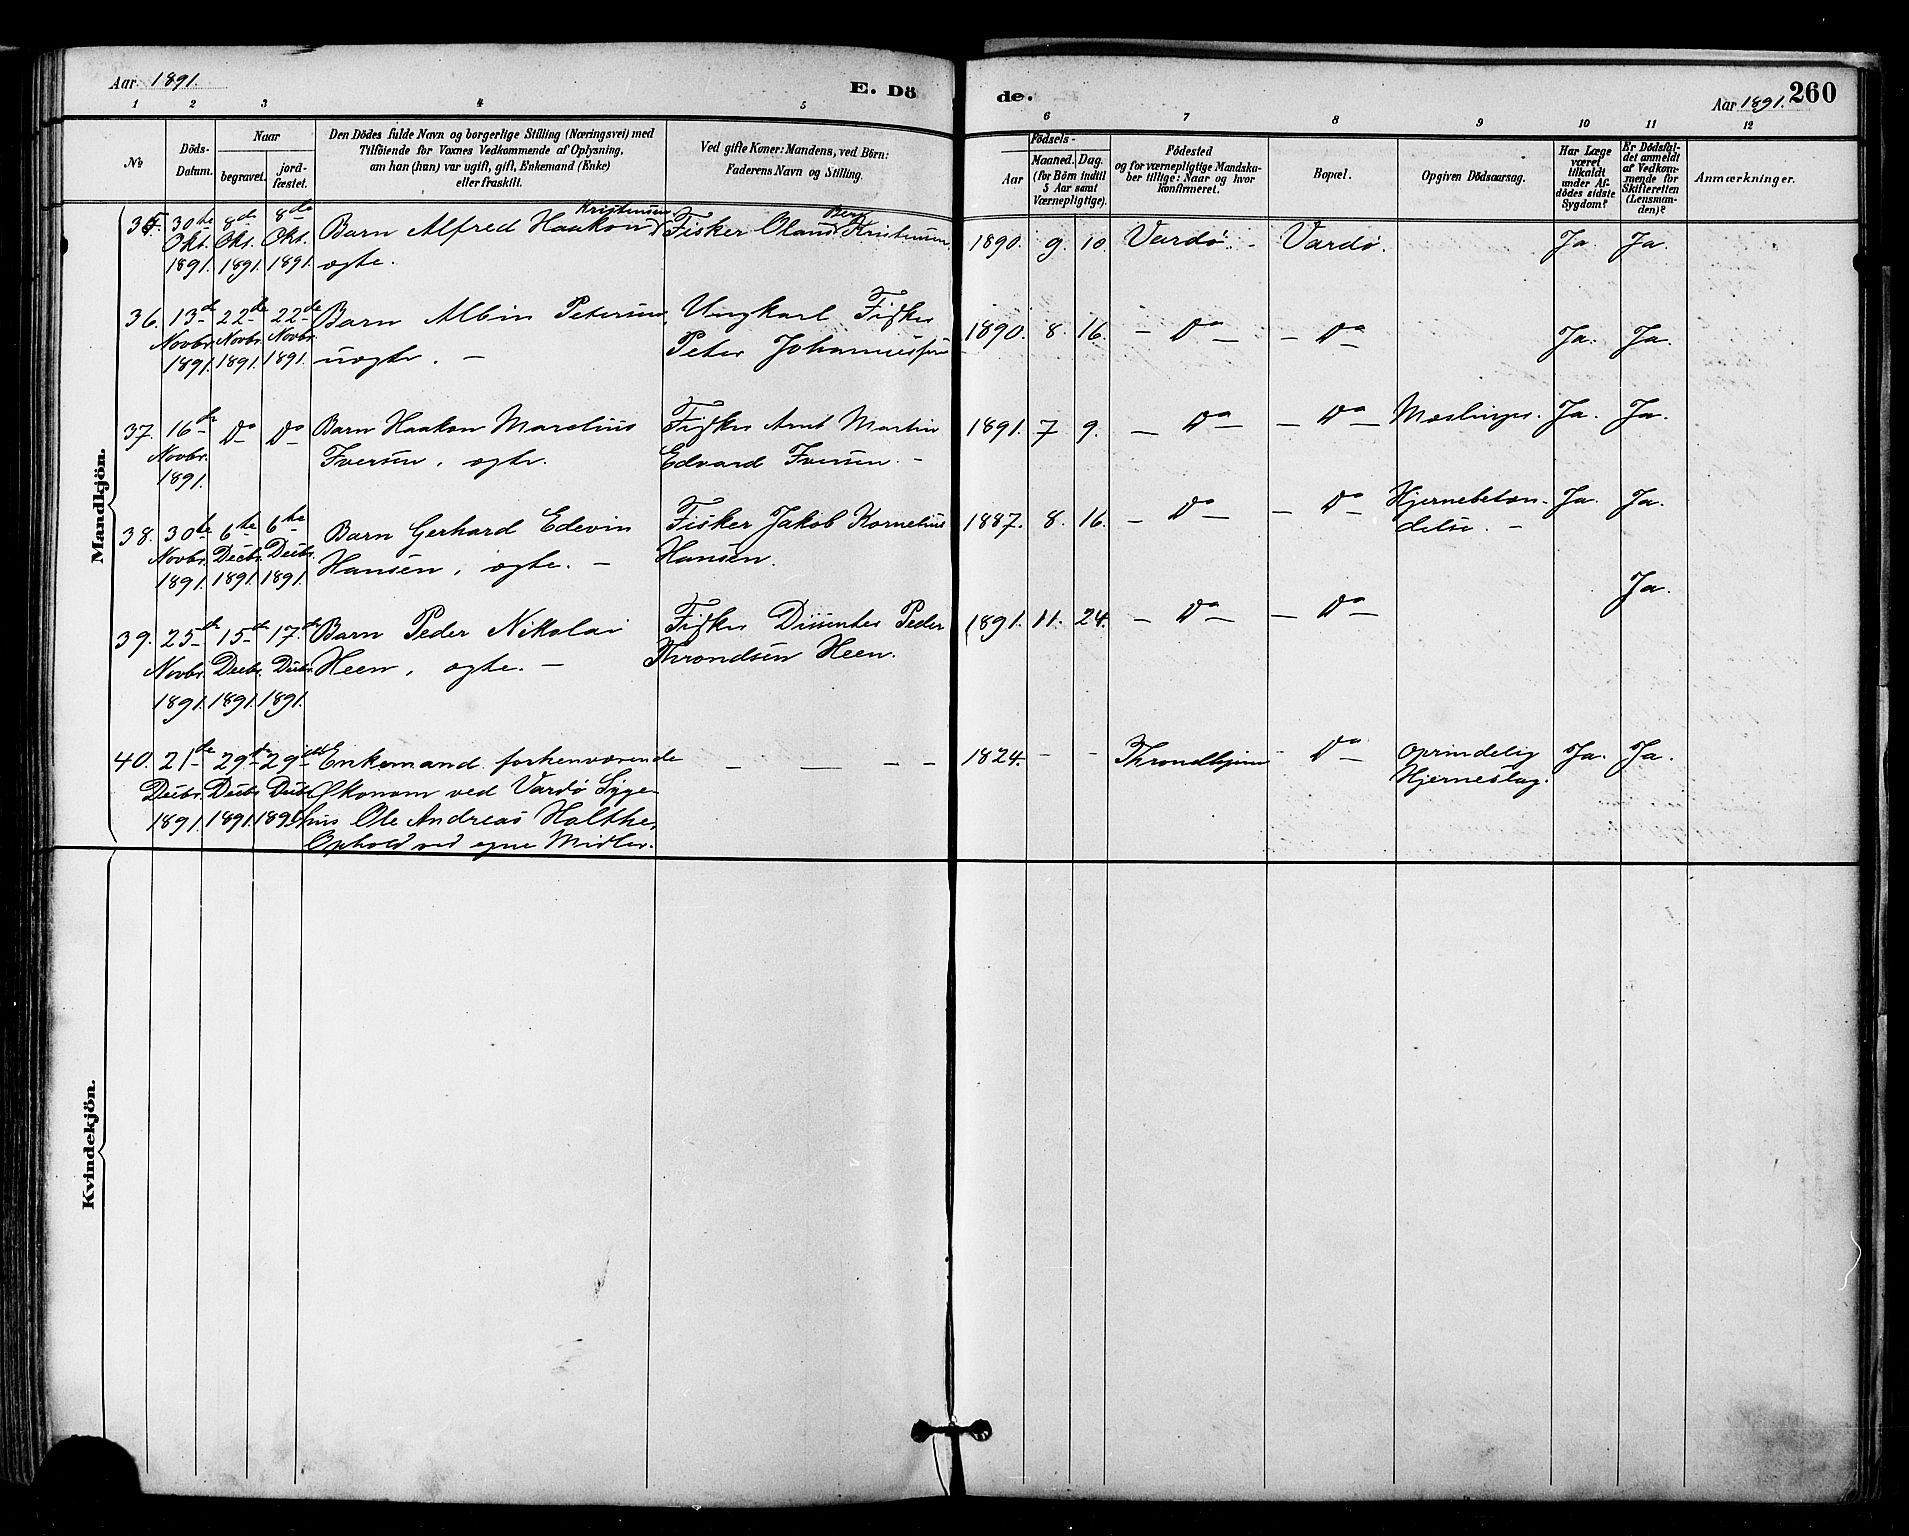 Aar 1891.
E. Dö
de.
Aar 1891.
260
1 2 3 4 5
6 7 8 9 10 11 12
No
Döds-
Datum.
Naar
begravet.
jord-
fæstet.
Den Dödes fulde Navn og borgerlige Stilling (Næringsvei) med
Tilföiende for Voxnes Vedkommende af Oplysning,
om han (hun) var ugift, gift, Enkemand (Enke)
eller fraskilt.
Ved gifte Koner: Mandens, ved Börn:
Faderens Navn og Stilling.
Födsels-
Aar
Maaned. Dag.
(for Börn indtil
5 Aar samt
Værnepligtige).
Födested
og for værnepligtige Mandska-
ber tillige: Naar og hvor
konfirmeret.
Bopæl.
Opgiven Dödsaarsag.
Har Læge
været
tilkaldt
under Af-
dödes sidste
Sygdom?
Er Dödsfal-
det anmeldt
af Vedkom-
mende for
Skifteretten
(Lensman-
den)?
Anmærkninger.
Mandkjön.
35. 30te Okt. 1891. 8de Okt. 1891. 8de Okt. 1891.
Kristensen
Barn Alfred Haakon
ogte.
Berg
Fisker Olaus Kristensen
1890. 9. 10 Vardø. – Vardø. Ja. Ja.
36. 13de Novbr. 1891. 22de Novbr. 1891. 22de Novbr. 1891.
Barn Albin Petersen,
uogte. –
Ungkarl Fisker
Peter Johannessen
1890. 8. 16. – Do – – Do – Ja. Ja.
37. 16de Novbr. 1891. Do Do
Barn Haakon Marelius
Iversen, ogte.
Fisker Arnt Martin
Edvard Iversen. –
1891. 7 9. – Do – – Do – Mæslinger. Ja. Ja.
38. 30te Novbr. 1891. 6te Decbr. 1891. 6te Decbr. 1891.
Barn Gerhard Edevin
Hansen, ogte. –
Fisker Jakob Kornelius
Hansen.
1887. 8. 16. – Do – – Do – Hjernebetæn-
delse. –
Ja. Ja.
39. 25de Novbr. 1891. 15de Decbr. 1891. 17de Decbr. 1891.
Barn Peder Nikolai
Heen, ogte. –
Fisker Dissenter Peder
Throndsen Heen.
1891. 11. 24. – Do – – Do – Ja.
40. 21de Decbr. 1891. 29de Decbr. 1891. 29de Decbr. 1891.
Enkemand forhenværende
Økonom ved Vardø Syge-
hus Ole Andreas Holthe,
Ophold ved egne Midler.
– — – –
1824. – – Throndhjem – Do – Oprindelig
Hjerneslag.
Ja. Ja.
Kvindekjön.